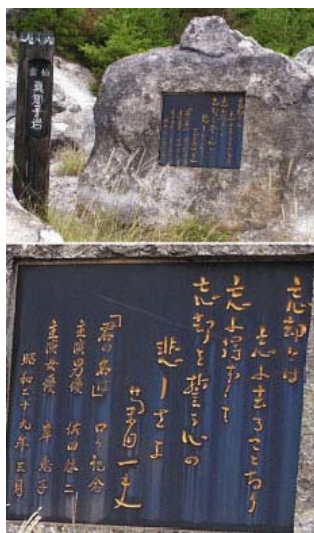 雲仙
真知子岩
忘却とは
忘れ去ることなり
忘れ得ずして
忘却を誓う心の
悲しさよ
菊田一夫
「君の名は」ロケ記念
主演男優 佐田啓二
主演女優 岸惠子
昭和二十九年三月